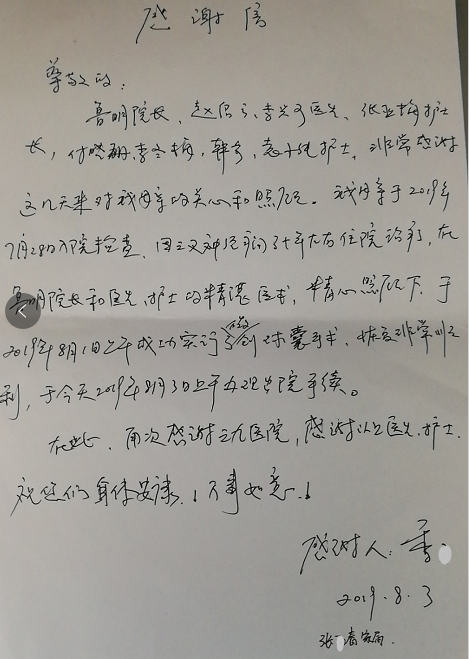 感谢信
尊敬的：
鲁明院长、赵、李医生、张亚梅护士
长，付晓翻、李冬梅，韩、袁护士，非常感谢
这几天来对我母亲的关心和照顾。我母亲于2019年
7月28日入院检查，因三叉神经痛了十年左右住院治疗，在
鲁明院长和医生，护士的精湛医术，精心照顾下，于
2019年8月1日上午成功实行了微创球囊手术，恢复非常顺
利，于今天2019年8月3日上午办理出院手续。
在此，再次感谢三九医院，感谢以上医生，护士，
祝您们身体安康！万事如意！
感谢人：季
2019.8.3
张春